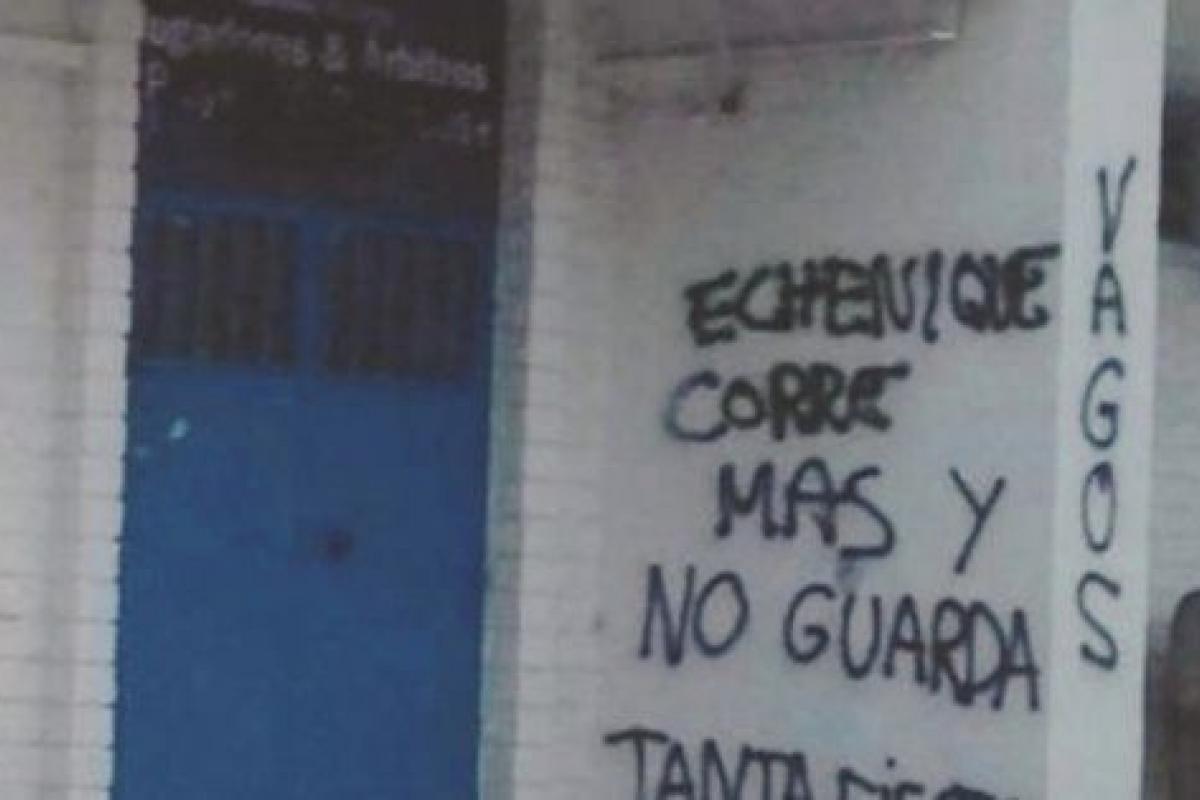 Jugadores & Arbitros
ECHENIQUE
CORRE
MAS Y
NO GUARDA
TANTA
VAGOS